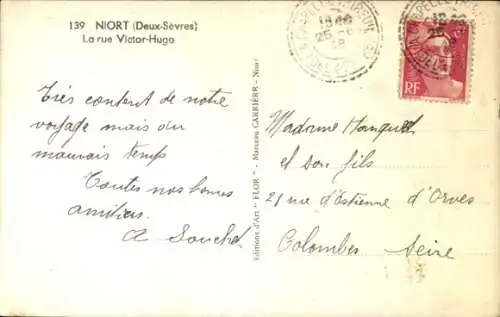 139 NIORT (Deux-Sèvres)
La rue Victor-Hugo
Très content de notre
voyage mais du
mauvais temps
Toutes nos bonnes
amitiés
A Souchet
Editions d'Art "FLOR" - Marceau CARRIÈRE - Niort
RF
Madame Hanquet
et son fils
21 rue d'Estienne d'Orves
Colombes Seine